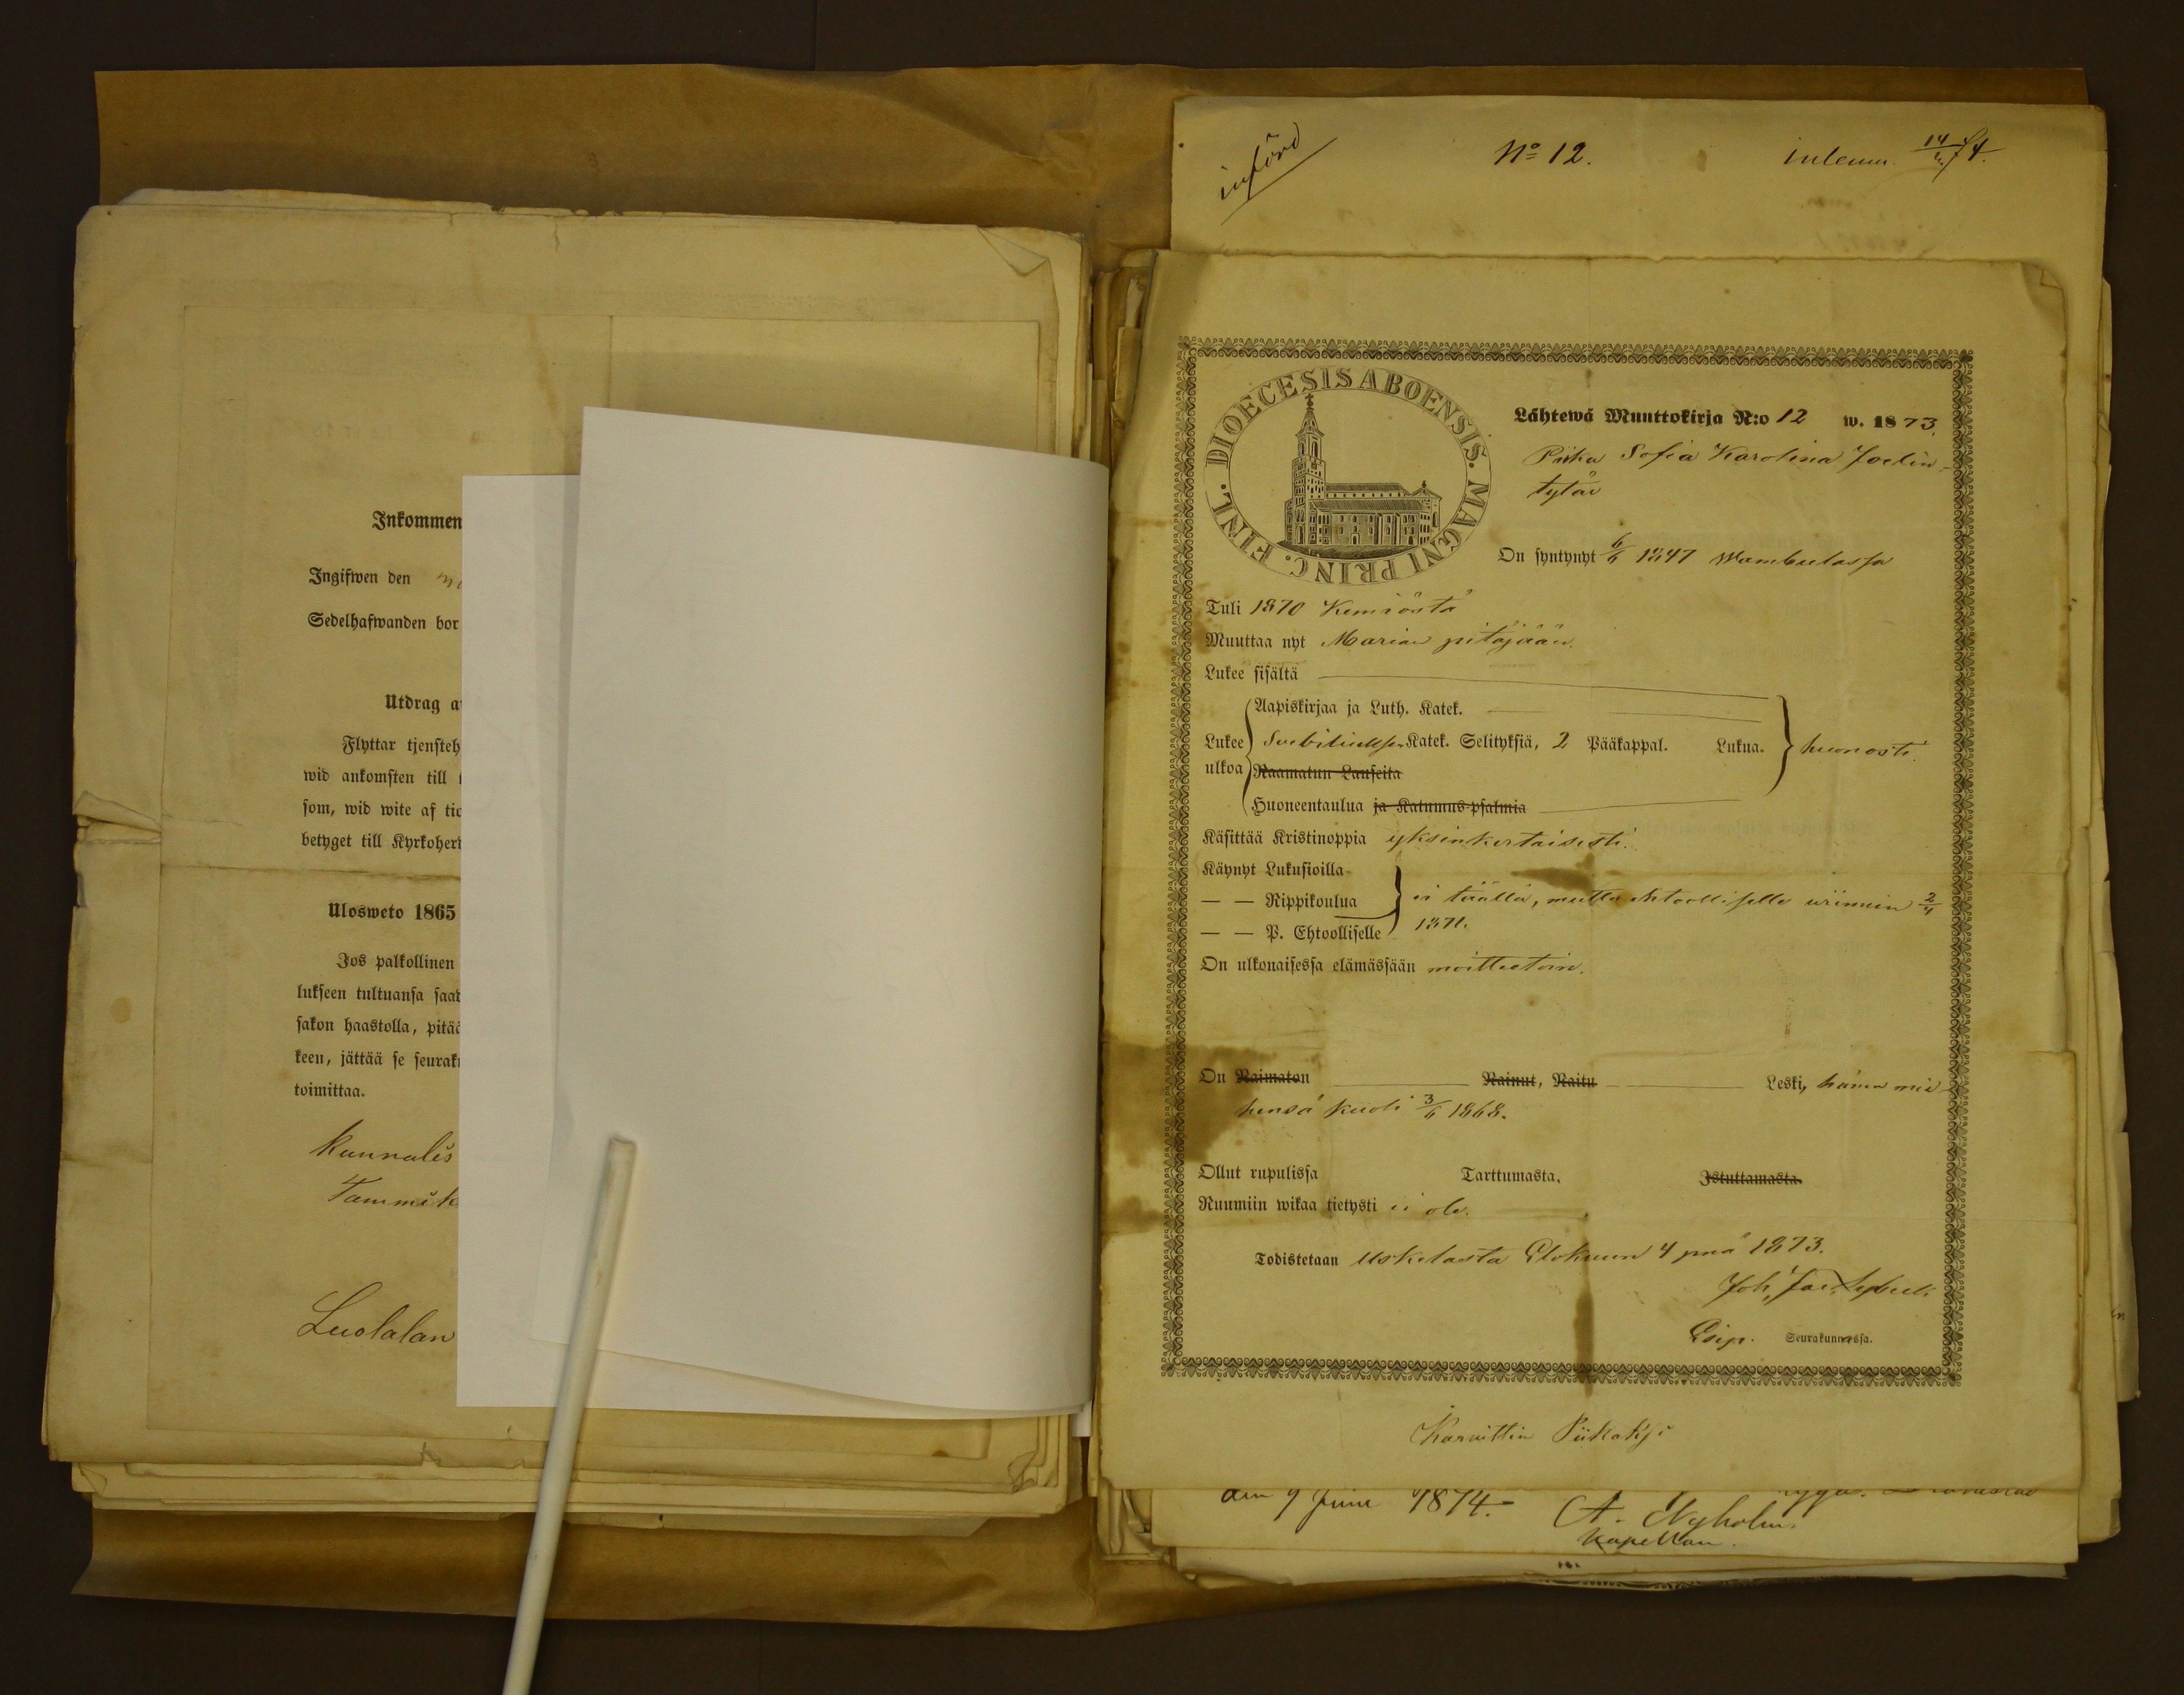 Inkommen
Ingifwen den
Sedelhafwanden bor
Utdrag a
Flyttar tjensteh
wid ankomsten till
som, wid wite af tio
betyget till Kyrkoher
Ulosweto 1865
Jos palkollinen
lukseen tultuansa saat
sakon haastolla, pitää
keen, jättää se seurak
toimittaa.
Kunnalis
Tammik
Luolalan
införd
No 12.
inlemn. 14/6 74.
DIOECESIS ABOENSIS. MAGNI PRINC. FINL.
Lähtewä Muuttokirja N:o 12 w. 1873.
Piika Sofia Karolina Joelin-
tytär
On syntynyt 6/6 1847 Wambulassa
Tuli 1870 Kemiöstä
Muuttaa nyt Marian pitäjään.
Lukee sisältä
Aapiskirjaa ja Luth. Katek.
Lukee Svebiliuksen Katek. Selityksiä, 2 Pääkappal. Lukua. huonosti.
ulkoa Raamatun Lauseita
Huoneentaulua ja Katumus-psalmia
Käsittää Kristinoppia yksinkertaisesti.
Käynyt Lukusioilla
— — Rippikoulua ei täällä, mutta ehtoolliselle wiimein 2/4
— — P. Ehtoolliselle 1871.
On ulkonaisessa elämässään moitteetoin.
On Naimaton Nainut, Naitu Leski, hänen mie-
hensä kuoli 3/6 1868.
Ollut rupulissa Tarttumasta, Istuttamasta.
Ruumiin wikaa tietysti ei ole.
Todistetaan Uskelasta Elokuun 4 pnä 1873.
Joh.
Esip. Seurakunnassa.
Karwittin Piikaksi
den 9 Juni 1874.
A. Nyholm
Kapellan.